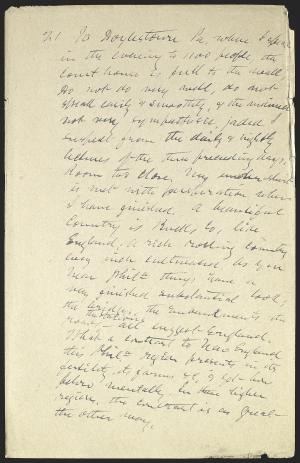 21 To Doylestown Pa, where I speak
in the evening to 1100 people, the
court house is full to the wall
Do not do very well, do not
speak easily & smoothly, & the audience
not very sympathetic, jaded I
suspect from the daily & nightly
lectures of the two preceding days.
Room too close. Very
is wet with perspiration when
I have finished. A beautiful
Country is Bucks Co, like
England, a rich rolling country
very high cultivated, as you
near Phila things have a
very finished substantial look,
the bridges, the embankments, the
the stations
roads — all suggest England.
What a contrast to New England
this Phila region presents in its
fertility, its farms &c, & yet how
below mentally. In the higher
regions, the contrast is as great
the other way.